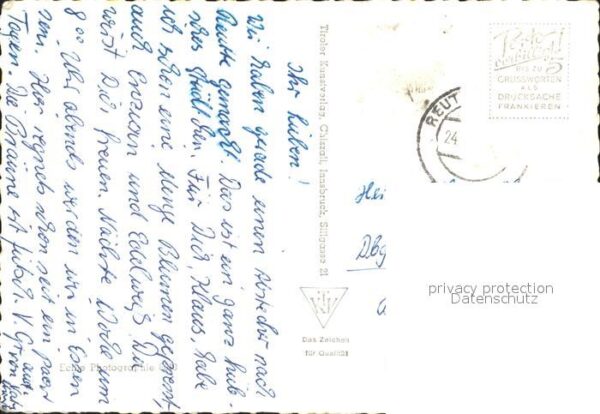 Ihr Lieben!
Wir haben gerade einen Abstecher nach
Reutte gemacht. Das ist ein ganz hüb-
sches Städtchen. Für Dich, Klaus, habe
ich schon eine Menge Blumen gepresst
auch Enzian und Edelweiß. Du
wirst Dich freuen. Nächste Woche um
8 00 Uhr abends werden wir in Essen
sein. Hier regnets schon seit ein paar
Tagen. Die Pension ist hübsch. V. Grüße
Tiroler Kunstverlag, Chizzali, Innsbruck, Sillgasse 21
Das Zeichen
für Qualität
Echte Photographie
BIS ZU
GRUSSWORTEN
ALS
DRUCKSACHE
FRANKIEREN
REUT
24
Hei
Dbg
privacy protection
Datenschutz